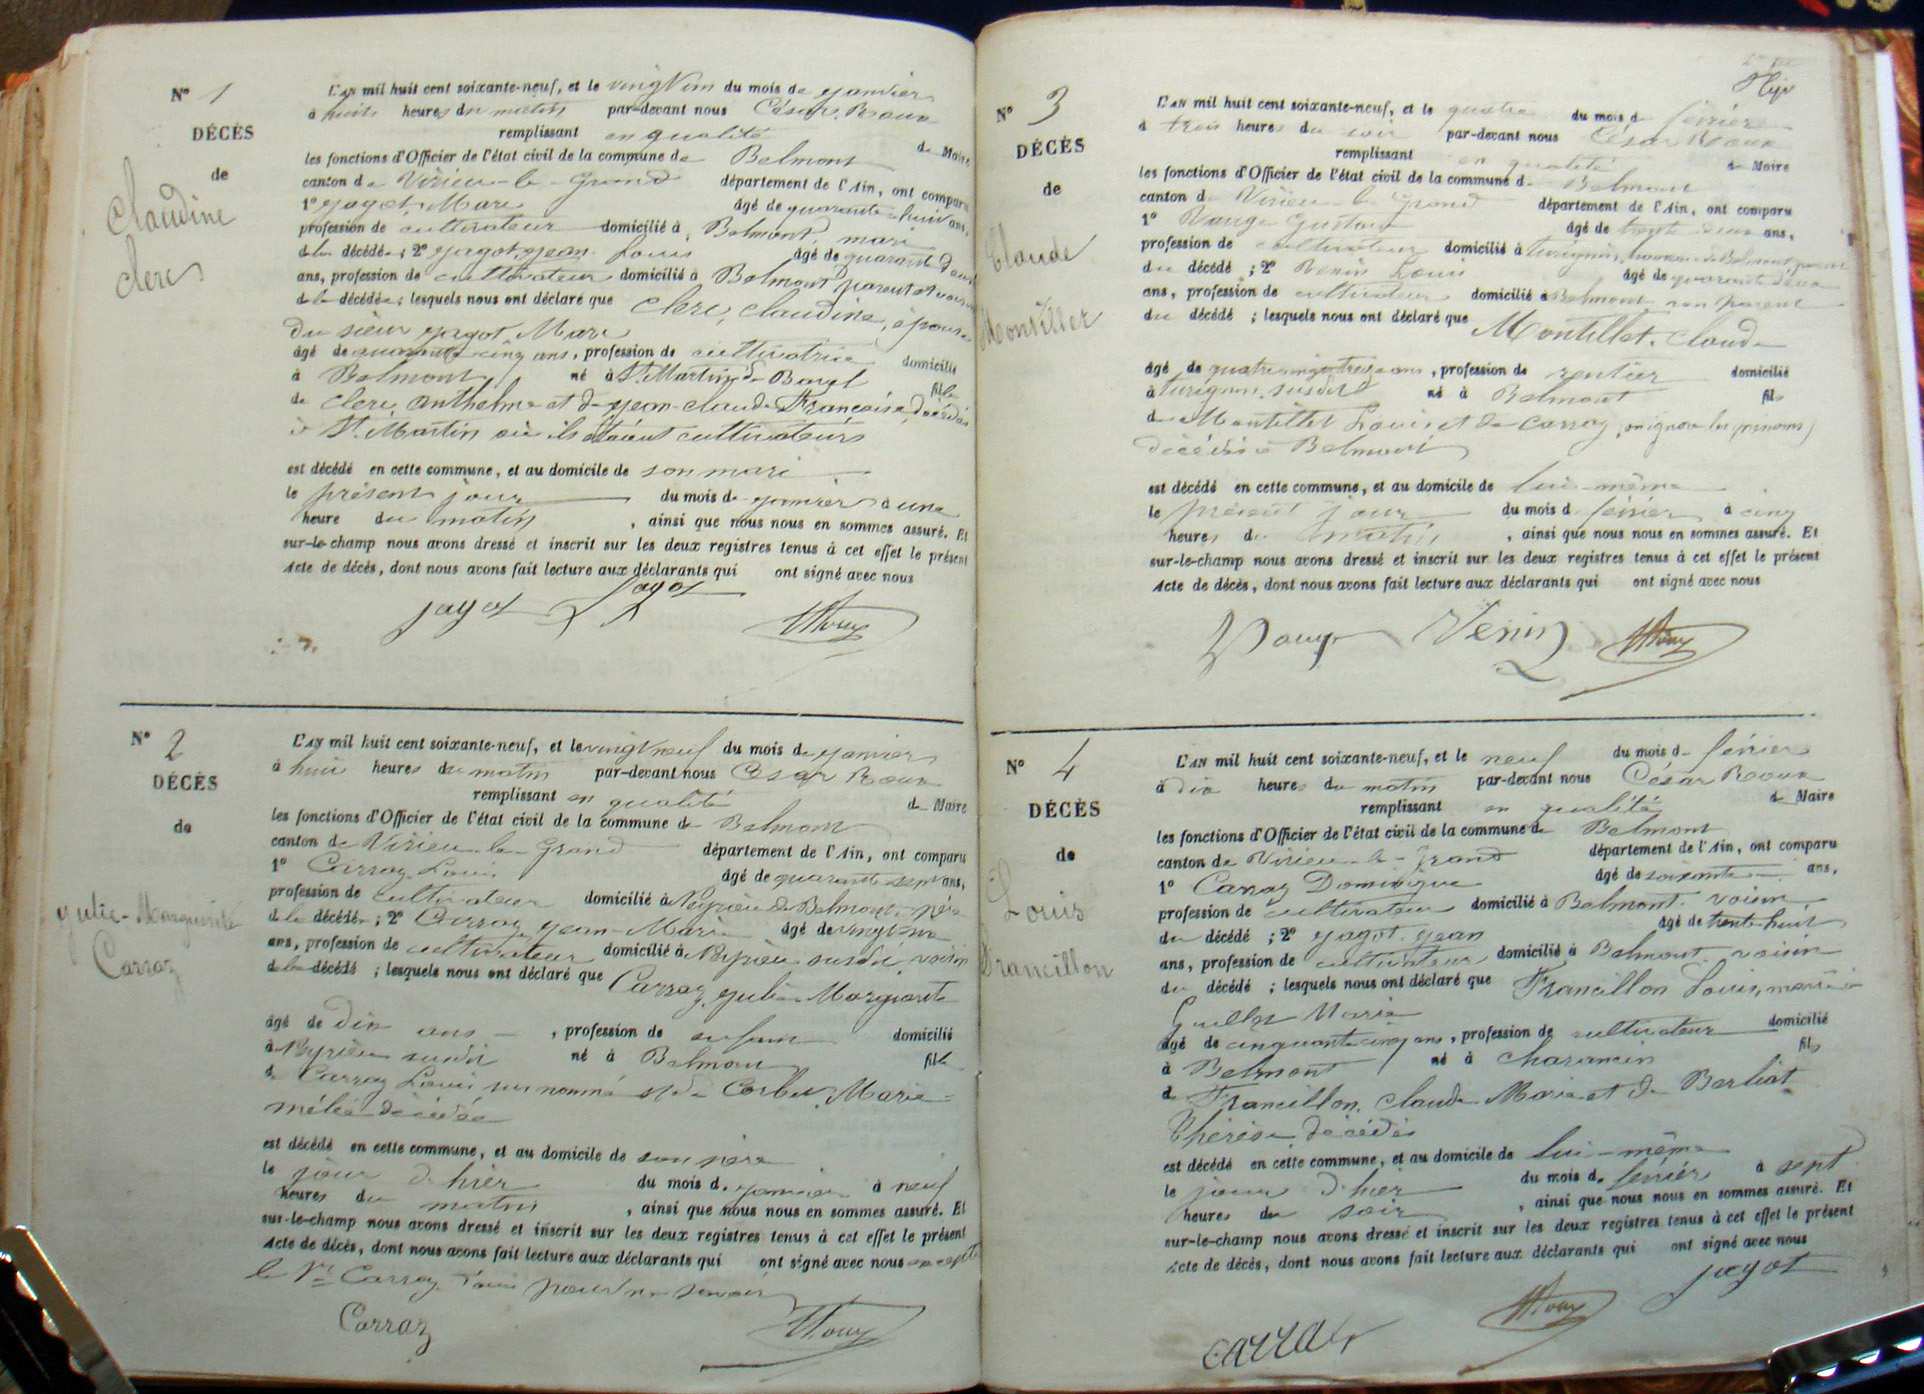 N° 1
DÉCÈS
de
Claudine
Clerc
L'AN mil huit cent soixante-neuf, et le vingt un du mois de janvier
à huit heures du matin par-devant nous César Roux
remplissant en qualité de Maire
les fonctions d'Officier de l'état civil de la commune de Belmont
canton de Virieu-le-Grand département de l'Ain, ont comparu
1° Jagot Marc âgé de quarante-huit ans,
profession de cultivateur domicilié à Belmont, mari
de la décédée ; 2° Jagot Jean Louis âgé de quarante deux
ans, profession de cultivateur domicilié à Belmont parent et voisin
de la décédée ; lesquels nous ont déclaré que Clerc, Claudine, épouse
du sieur Jagot Marc
âgé de quarante cinq ans, profession de cultivatrice domicilié
à Belmont, né à St Martin de Bavel fille
de Clerc Anthelme et de Jean-Claude Françoise, décédés
à St Martin où ils étaient cultivateurs
est décédé en cette commune, et au domicile de son mari
le présent jour du mois de janvier à une
heure du matin, ainsi que nous nous en sommes assuré. Et
sur-le-champ nous avons dressé et inscrit sur les deux registres tenus à cet effet le présent
Acte de décès, dont nous avons fait lecture aux déclarants qui ont signé avec nous
Jagot Jagot Roux
N° 2
DÉCÈS
de
Julie-Marguerite
Carraz
L'AN mil huit cent soixante-neuf, et le vingt neuf du mois de janvier
à huit heures du matin par-devant nous César Roux
remplissant en qualité de Maire
les fonctions d'Officier de l'état civil de la commune de Belmont
canton de Virieu-le-Grand département de l'Ain, ont comparu
1° Carraz Louis âgé de quarante sept ans,
profession de cultivateur domicilié à Neyrieu de Belmont, père
de la décédée ; 2° Carraz Jean-Marie âgé de vingt
ans, profession de cultivateur domicilié à Neyrieu susdit, voisin
de la décédé ; lesquels nous ont déclaré que Carraz Julie Marguerite
âgé de dix ans, profession de enfant domicilié
à Neyrieu susdit né à Belmont fille
de Carraz Louis, surnommé et de Corbet, Marie
mélie décédée
est décédé en cette commune, et au domicile de son père
le jour d'hier du mois de janvier à neuf
heures du matin, ainsi que nous nous en sommes assuré. Et
sur-le-champ nous avons dressé et inscrit sur les deux registres tenus à cet effet le présent
Acte de décès, dont nous avons fait lecture aux déclarants qui ont signé avec nous excepté
le Sr Carraz Louis pour ne savoir
Carraz Roux
N° 3
DÉCÈS
de
Claude
Montillet
L'AN mil huit cent soixante-neuf, et le quatre du mois de février
à trois heures du soir par-devant nous César Roux
remplissant en qualité de Maire
les fonctions d'Officier de l'état civil de la commune de Belmont
canton de Virieu-le-Grand département de l'Ain, ont comparu
1° Gustave âgé de trente deux ans,
profession de cultivateur domicilié à hameau de Belmont
du décédé ; 2° Venin Louis âgé de quarante deux
ans, profession de cultivateur domicilié à Belmont non parent
du décédé ; lesquels nous ont déclaré que Montillet, Claude
âgé de quatre vingt treize ans, profession de rentier domicilié
à susdit né à Belmont fils
de Montillet Louis et de Carraz, (on ignore les prénoms)
décédés à Belmont
est décédé en cette commune, et au domicile de lui-même
le présent jour du mois de février à cinq
heures du matin, ainsi que nous nous en sommes assuré. Et
sur-le-champ nous avons dressé et inscrit sur les deux registres tenus à cet effet le présent
Acte de décès, dont nous avons fait lecture aux déclarants qui ont signé avec nous
Venin Roux
N° 4
DÉCÈS
de
Louis
Francillon
L'AN mil huit cent soixante-neuf, et le neuf du mois de février
à dix heures du matin par-devant nous César Roux
remplissant en qualité de Maire
les fonctions d'Officier de l'état civil de la commune de Belmont
canton de Virieu-le-Grand département de l'Ain, ont comparu
1° Carraz Dominique âgé de soixante ans,
profession de cultivateur domicilié à Belmont, voisin
du décédé ; 2° Jagot Jean âgé de trente-huit
ans, profession de cultivateur domicilié à Belmont, voisin
du décédé ; lesquels nous ont déclaré que Francillon Louis, marié à
Guillot Marie
âgé de cinquante cinq ans, profession de cultivateur domicilié
à Belmont né à Charancin fils
de Francillon, Claude Marie et de Berliat
Thérèse, décédés
est décédé en cette commune, et au domicile de lui-même
le jour d'hier du mois de février à sept
heures du soir, ainsi que nous nous en sommes assuré. Et
sur-le-champ nous avons dressé et inscrit sur les deux registres tenus à cet effet le présent
Acte de décès, dont nous avons fait lecture aux déclarants qui ont signé avec nous
Jagot
Roux
carraz